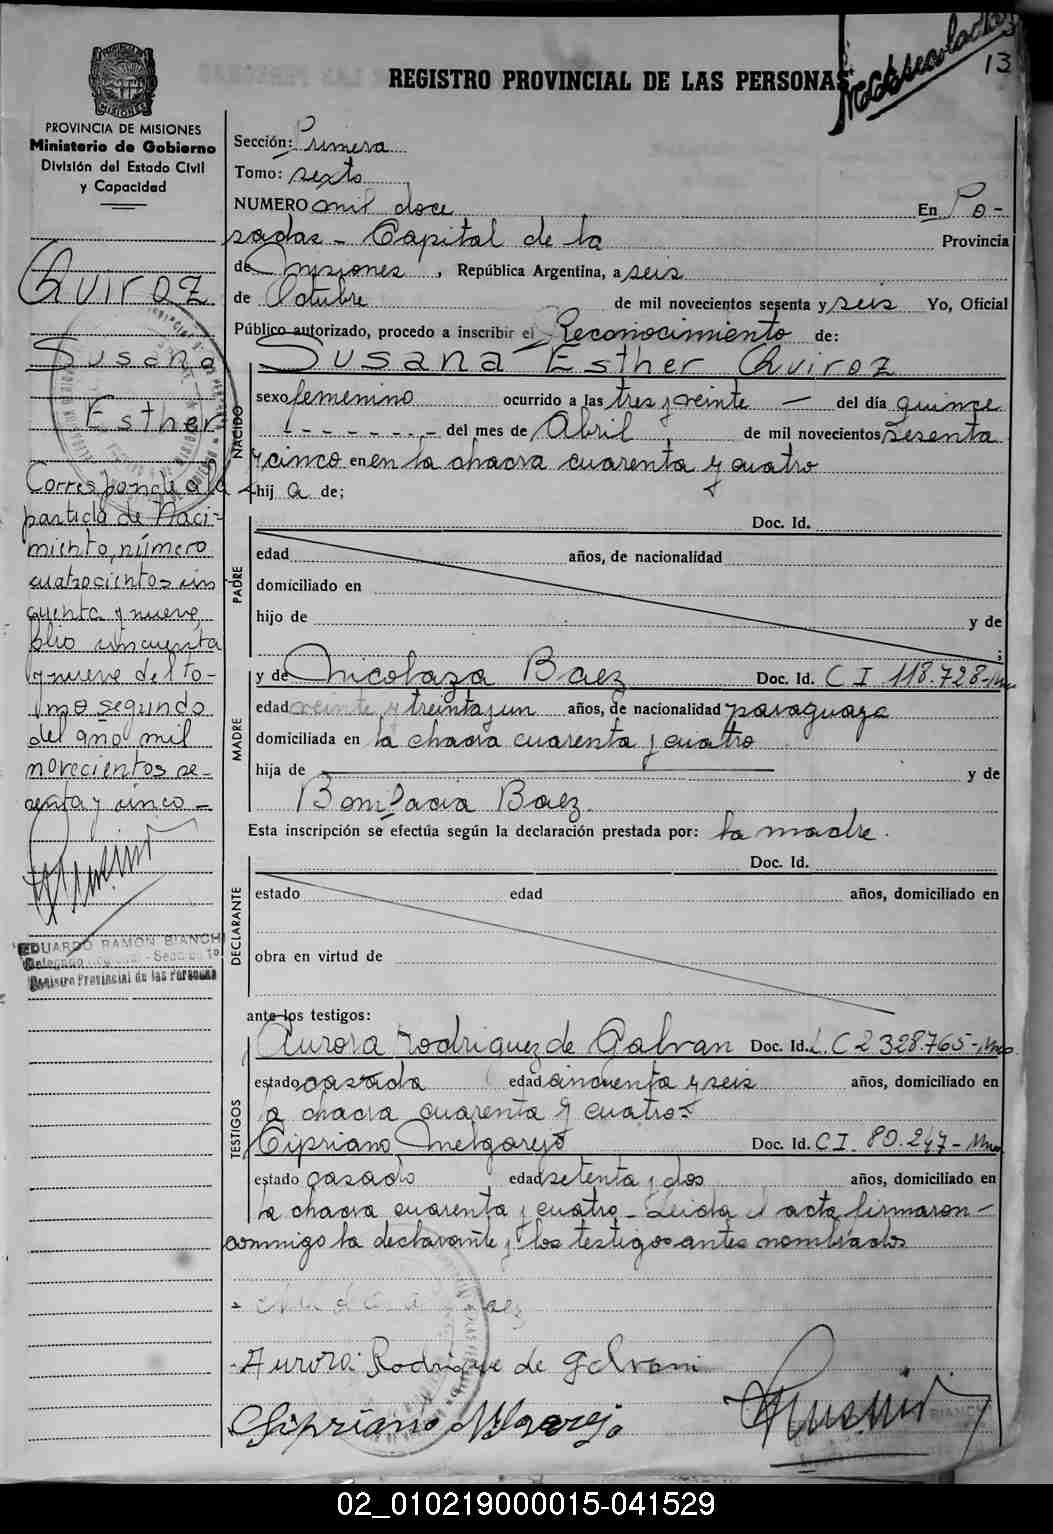 Reconocimiento
13
REGISTRO PROVINCIAL DE LAS PERSONAS
PROVINCIA DE MISIONES
Ministerio de Gobierno
División del Estado Civil
y Capacidad
Quiroz
Susana
Esther
Corresponde a la
partida de Naci-
miento, número
cuatrocientos cin
cuenta y nueve,
folio cincuenta
y nueve del to-
mo segundo
del año mil
novecientos se-
senta y cinco -
EDUARDO RAMON BIANCHI
Delegado - Sección 1ª
Registro Provincial de las Personas
Sección: Primera
Tomo: sexto
NUMERO mil doce En Po-
sadas - Capital de la Provincia
de Misiones, República Argentina, a seis
de Octubre de mil novecientos sesenta y seis Yo, Oficial
Público autorizado, procedo a inscribir el Reconocimiento de:
Susana Esther Quiroz
NACIDO
sexo femenino ocurrido a las tres y veinte - del día quince
- - - - - - - del mes de Abril de mil novecientos sesenta
y cinco en en la chacra cuarenta y cuatro
hij a de;
PADRE
Doc. Id.
edad años, de nacionalidad
domiciliado en
hijo de y de
;
MADRE
y de Nicolaza Baez Doc. Id. C I 118.728-Mnes
edad veinte y treinta y un años, de nacionalidad paraguaya
domiciliada en la chacra cuarenta y cuatro
hija de y de
Bonifacia Baez.
Esta inscripción se efectúa según la declaración prestada por: la madre.
DECLARANTE
Doc. Id.
estado edad años, domiciliado en
obra en virtud de
ante los testigos:
TESTIGOS
Aurora Rodriguez de Galvan Doc. Id. L.C 2 328.765-Mnes
estado casada edad cincuenta y seis años, domiciliado en
la chacra cuarenta y cuatro-
Cipriano Melgarejo Doc. Id. C I. 80.247-Mnes
estado casado edad setenta y dos años, domiciliado en
la chacra cuarenta y cuatro - Leida el acta firmaron-
conmigo la declarante y los testigos antes nombrados
Aurora Rodrigue de Galvan
Cipriano Melgarejo
02_010219000015-041529